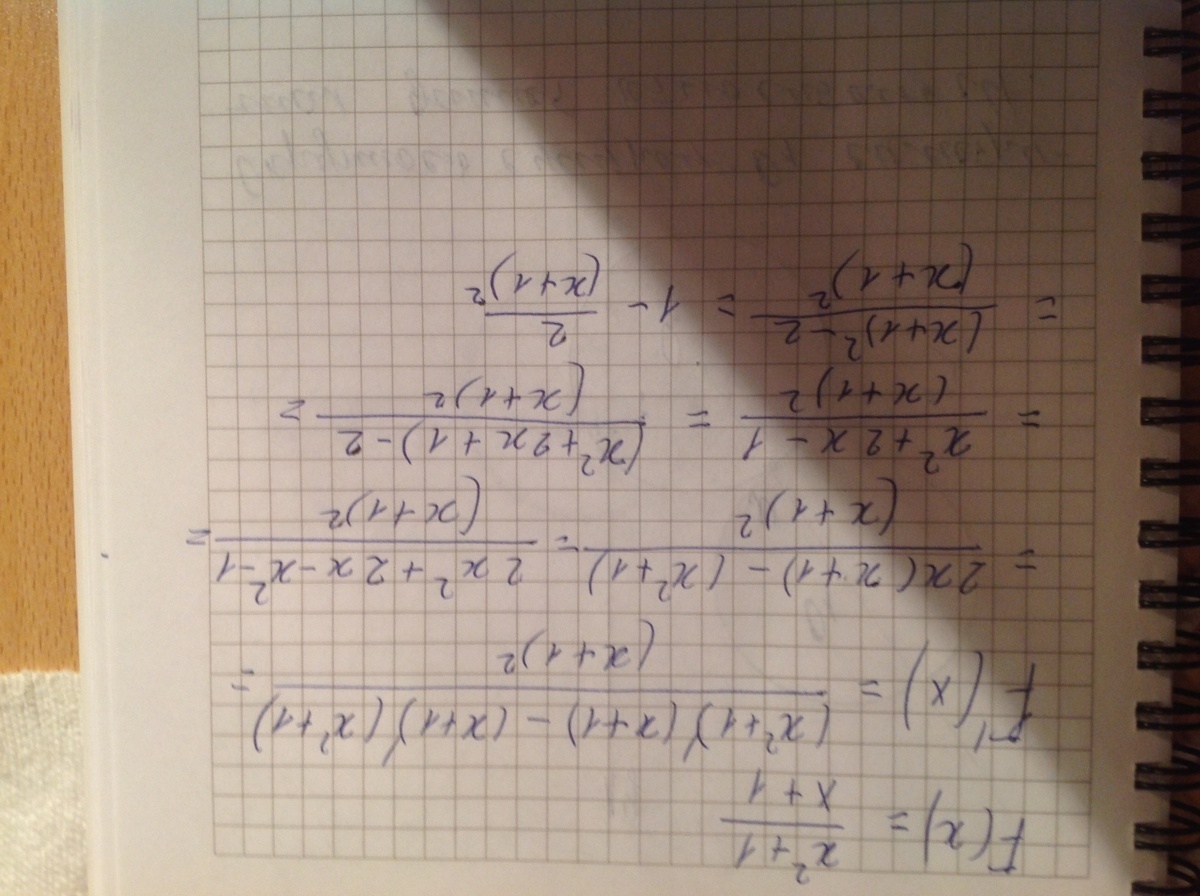 F(x) = \frac{x²+1}{x+1}
F'(x) = \frac{(x²+1)'(x+1) - (x+1)'(x²+1)}{(x+1)²} =
= \frac{2x(x+1) - (x²+1)}{(x+1)²} = \frac{2x²+2x-x²-1}{(x+1)²} =
= \frac{x²+2x-1}{(x+1)²} = \frac{(x²+2x+1)-2}{(x+1)²} =
= \frac{(x+1)²-2}{(x+1)²} = 1 - \frac{2}{(x+1)²}